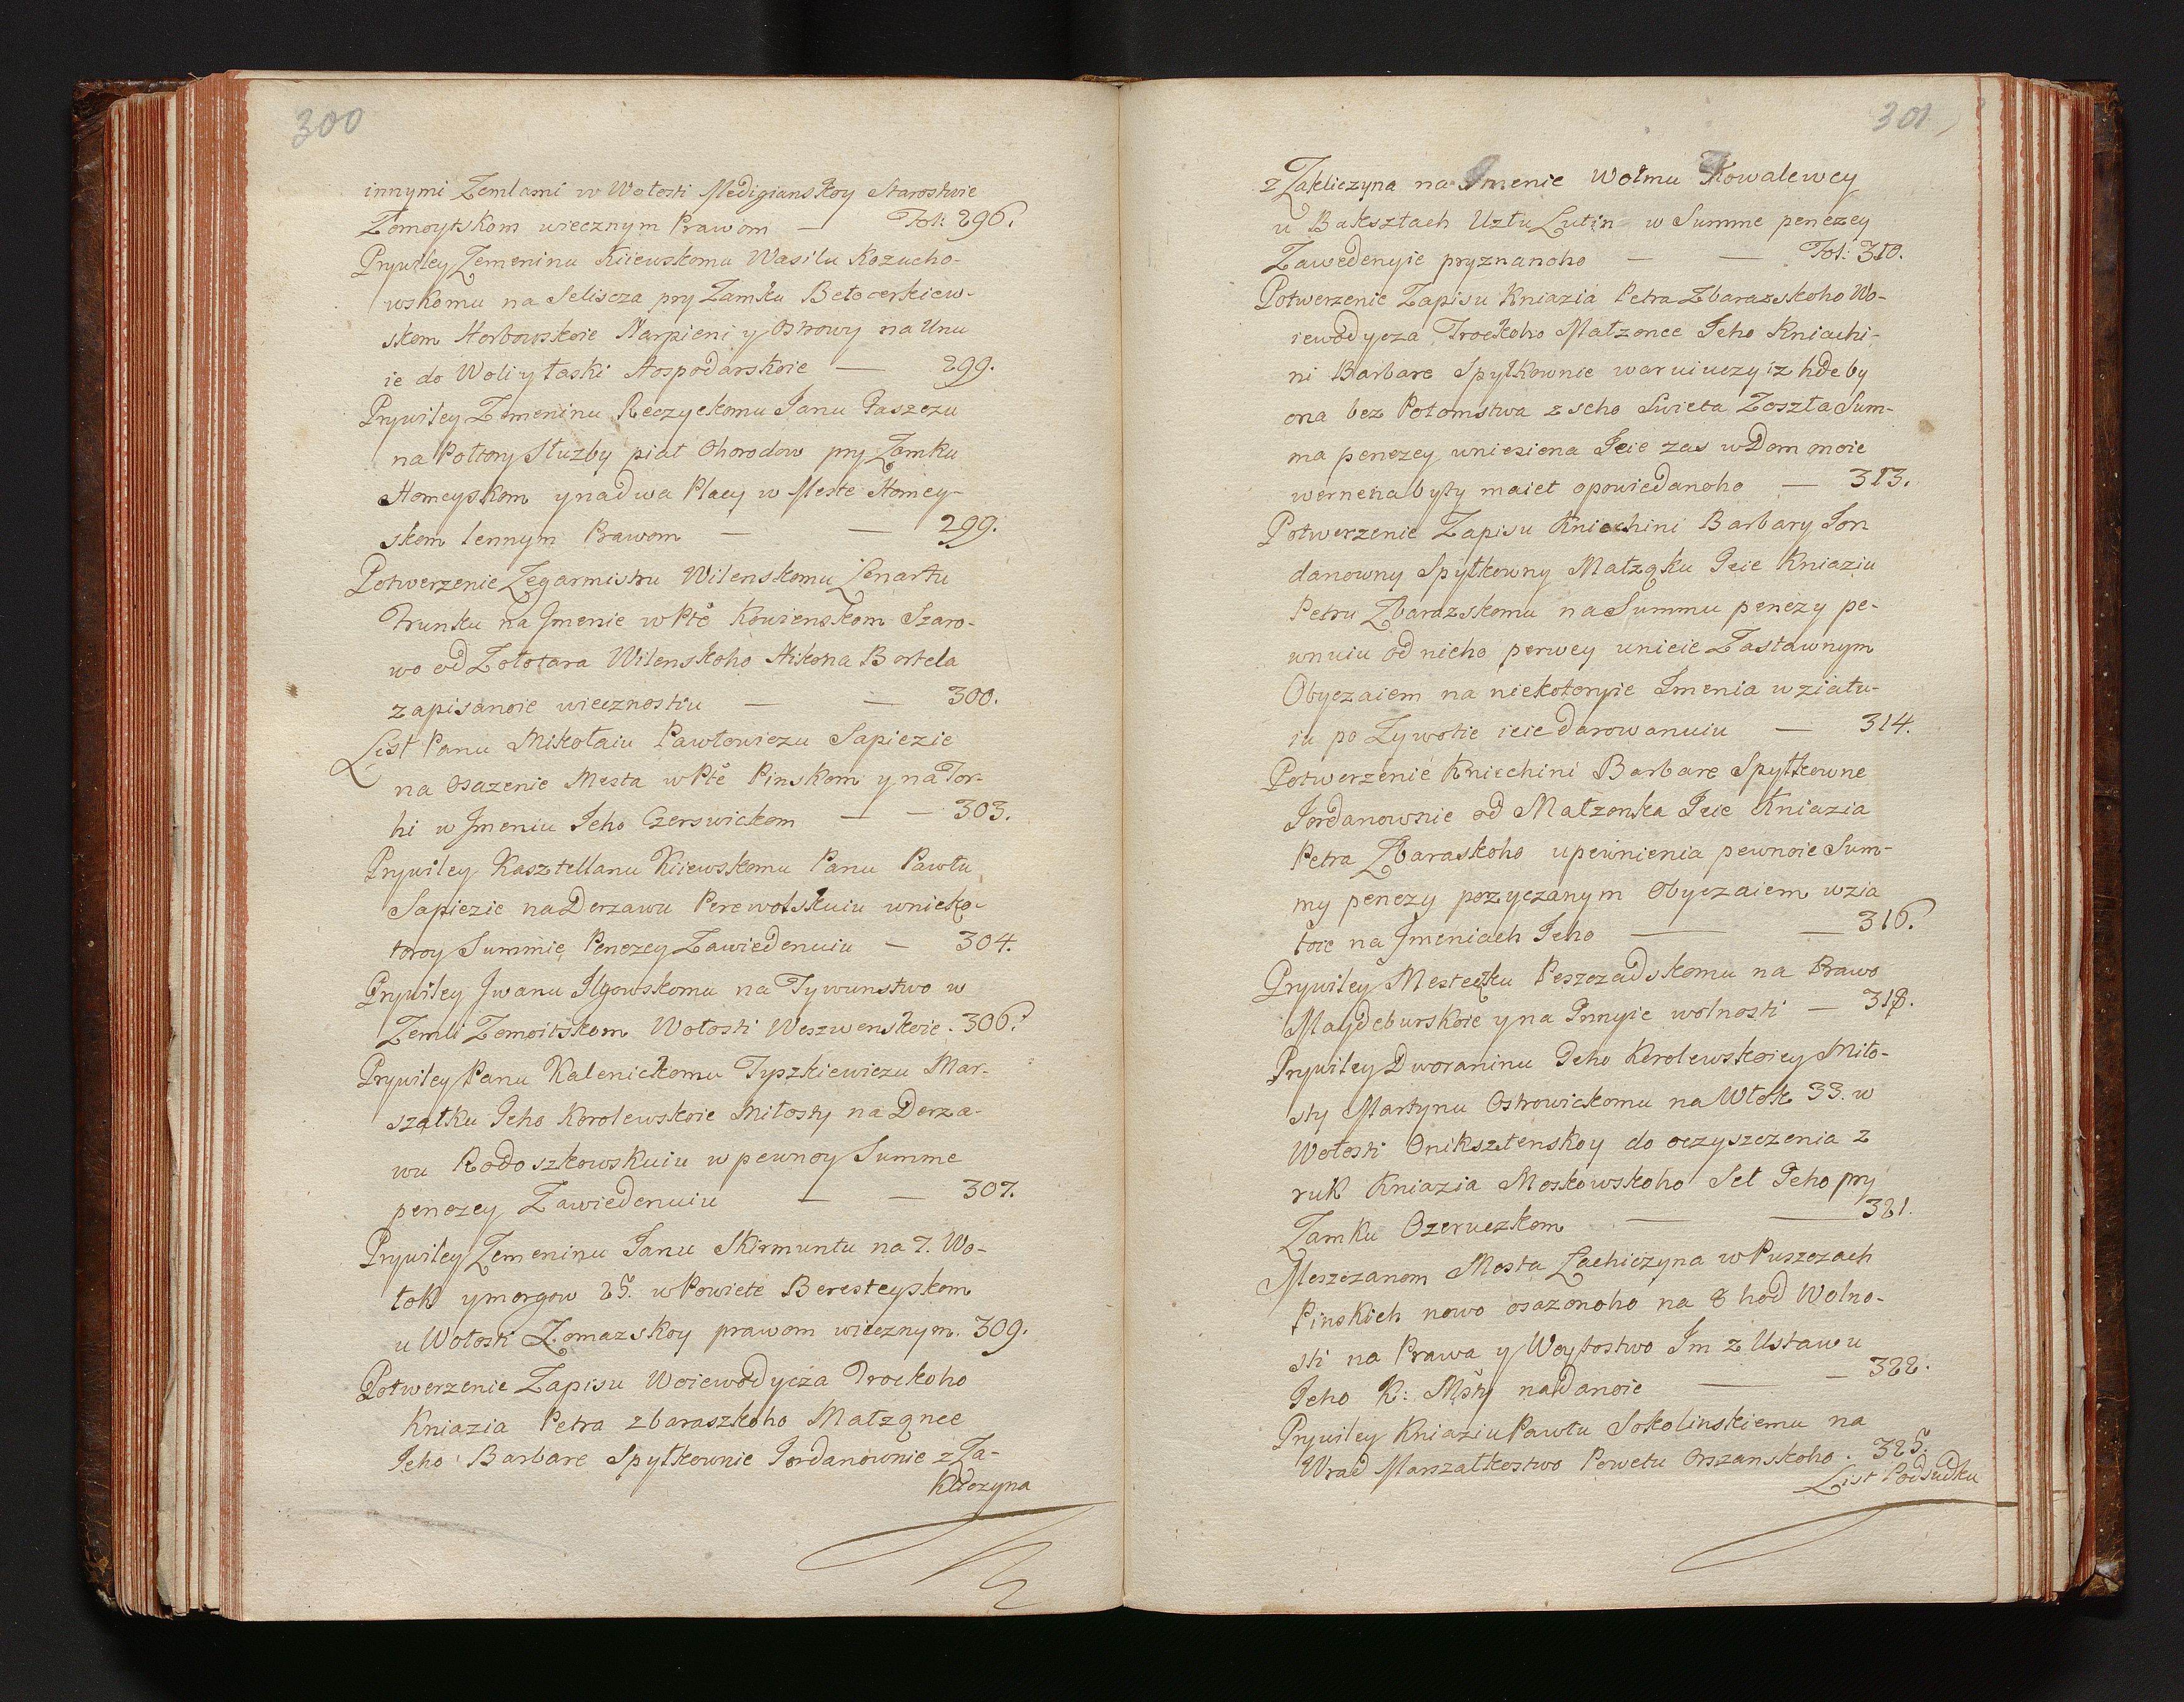 300
innymi Zemlami w Wołosti Medigianskoy Starostwie
Żomoytskom wiecznym Prawom — Fol: 296.
Prywiley Zemeninu Kiiewskomu Wasilu Kozucho-
wskomu na Seliscza pry Zamku Bełocerkiew-
skom Horbowskoie Narpieni y Ostrowy na Unu
ie do Woli y łaski Hospodarskoie — 299.
Prywiley Zemeninu Reczyckomu Janu Paszczu
na Połtory Służby piat Ohorodow pry Zamku
Homeyskom y na dwa Placy w Meste Homey-
skom lennym Prawom — — 299.
Potwerzenie Zegarmistru Wilenskomu Lenartu
Trunku na Jmenie w Pťe Kowienskom Szaro-
wo od Zołotara Wilenskoho Mikoła Bortela
zapisanoie wiecznostiu — — 300.
List Panu Mikołaiu Pawłowiczu Sapiezie
na Osazenie Mesta w Pťe Pinskom y na Tor-
hi w Jmeniu Jeho Czerswickom — — 303.
Prywiley Kasztellanu Kiiewskomu Panu Pawłu
Sapiezie na Derzawu Perewolskuiu w nieko-
toroy Summie Penezey Zawiedenuiu — 304.
Prywiley Jwanu Ilgowskomu na Tywunstwo w
Zemli Zomoitskom Wołosti Weszwenskoie. 306.
Prywiley Panu Kalenickomu Tyszkiewiczu Mar-
szałku Jeho Korolewskoie Miłosty na Derza-
wu Rodoszkowskuiu w pewnoy Summe
penezey Zawiedenuiu — — 307.
Prywiley Zemeninu Janu Skirmuntu na 7. Wo-
łok y morgow 25. w Powiete Beresteyskom
u Wołosti Łomazskoy prawom wiecznym. 309.
Potwerzenie Zapisu Woiewodycza Trockoho
Kniazia Petra zbaraszkoho Małząnce
Jeho Barbare Spytkownie Jordanownie z Za-
kliczyna
301
z Zakliczyna na Jmenie Wołmu Kowalewcy
u Baksztach Uztu Lutin w Summe penezey
Zawedenyie pryznanoho — — Fol: 310.
Potwerzenie Zapisu Kniazia Petra Zbarazskoho Wo-
iewodycza Trockoho Małzonce Jeho Kniachi-
ni Barbare Spytkownie waruiuczy iz hde by
ona bez Potomstwa z seho Swieta Zoszła Sum-
ma penezey uniesiena Jeie zas w Dom moie
wernena byty maiet opowiedanoho — 313.
Potwerzenie Zapisu Kniechini Barbary Jor
danowny Spytkowny Małząku Jeie Kniaziu
Petru Zbarazskomu na Summu penezy pe-
wnuiu od nieho perwey unieie Zastawnym
Obyczaiem na niekotoryie Jmenia wziatu-
iu po Zywotie ieie darowanuiu — 314.
Potwerzenie Kniechini Barbare Spytkowne
Jordanownie od Małzonka Jeie Kniazia
Petra Zbaraskoho upewnienia pewnoie Sum-
my penezy pozyczanym Obyczaiem wzia
toie na Jmeniach Jeho — — 316.
Prywiley Mesteczku Peszczadskomu na Prawo
Maydeburskoie y na Jnnyie wolnosti — 318.
Prywiley Dworaninu Jeho Korolewskoiey Miło-
sty Martynu Ostrowickomu na Włok 33. w
Wołosti Onikszte nskoy do oczyszczenia z
ruk Kniazia Moskowskoho Sel Jeho pry
Zamku Ozeruczkom — — 321.
Meszczanom Mesta Łachiczyna w Puszczach
Pinskich nowo osazonoho na 8 hod Wolno-
sti na Prawa y Woytostwo Im z Ustawu
Jeho K: Mšty nadanoie — — 322.
Prywiley Kniaziu Pawłu Sokolinskiemu na
Wrad Marszałkostwo Powetu Orszanskoho. 325.
List Podsudku